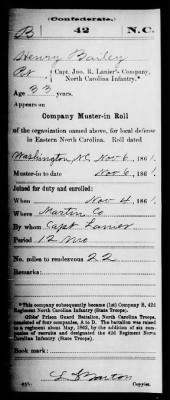 (Confederate.)
B 42 N.C.
Henry Bailey
Pvt, Capt. Jno. R. Lanier's Company,
North Carolina Infantry.*
Age 33 years.
Appears on
Company Muster-in Roll
of the organization named above, for local defense
in Eastern North Carolina. Roll dated
Washington, NC, Nov 6, 1861.
Muster-in to date Nov 6, 1861.
Joined for duty and enrolled:
When Nov 4, 1861.
Where Martin Co
By whom Capt Lanier
Period 12 mo
No. miles to rendezvous 22
Remarks:
*This company subsequently became (1st) Company B, 42d
Regiment North Carolina Infantry (State Troops).
Gibbs' Prison Guard Battalion, North Carolina Troops,
consisted of four companies, A to D. The battalion was raised
to a regiment about May, 1862, by the addition of six com-
panies of recruits and designated the 42d Regiment North
Carolina Infantry (State Troops).
Book mark:
Barton
Copyist.